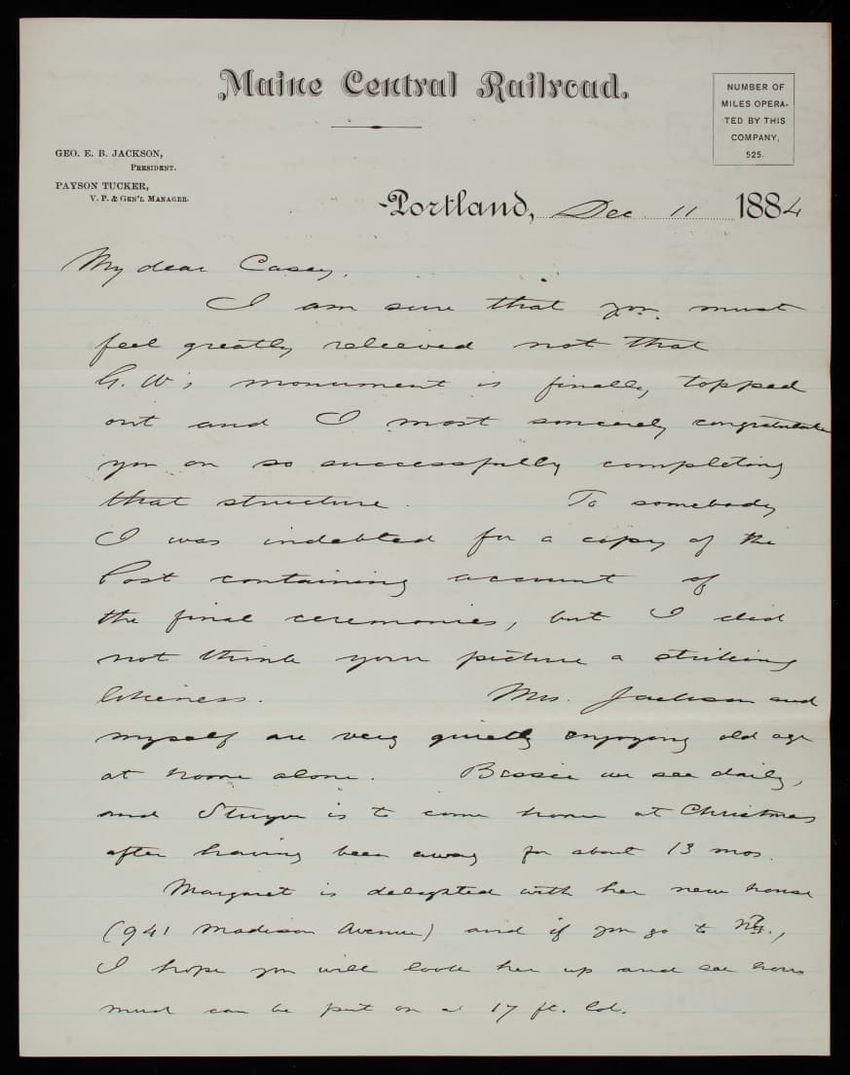 Maine Central Railroad.
NUMBER OF
MILES OPERA-
TED BY THIS
COMPANY,
525.
GEO. E. B. JACKSON,
PRESIDENT.
PAYSON TUCKER,
V. P. & GEN'L MANAGER.
Portland, Dec. 11 1884
My dear Casey,
I am sure that you must
feel greatly relieved not that
G. W's monument is finally topped
out and I most sincerely congratulate
you on so successfully completing
that structure. To somebody
I was indebted for a copy of the
Post containing account of
the final ceremonies, but I did
not think your picture a striking
likeness. Mrs. Jackson and
myself are very quietly enjoying old age
at home alone. Bessie we see daily,
and is to come home at Christmas
after having been away for about 13 mos.
Margaret is delighted with her new house
(941 Madison Avenue) and if you go to NY.,
I hope you will look her up and see how
much can be put on a 17 ft. lot.